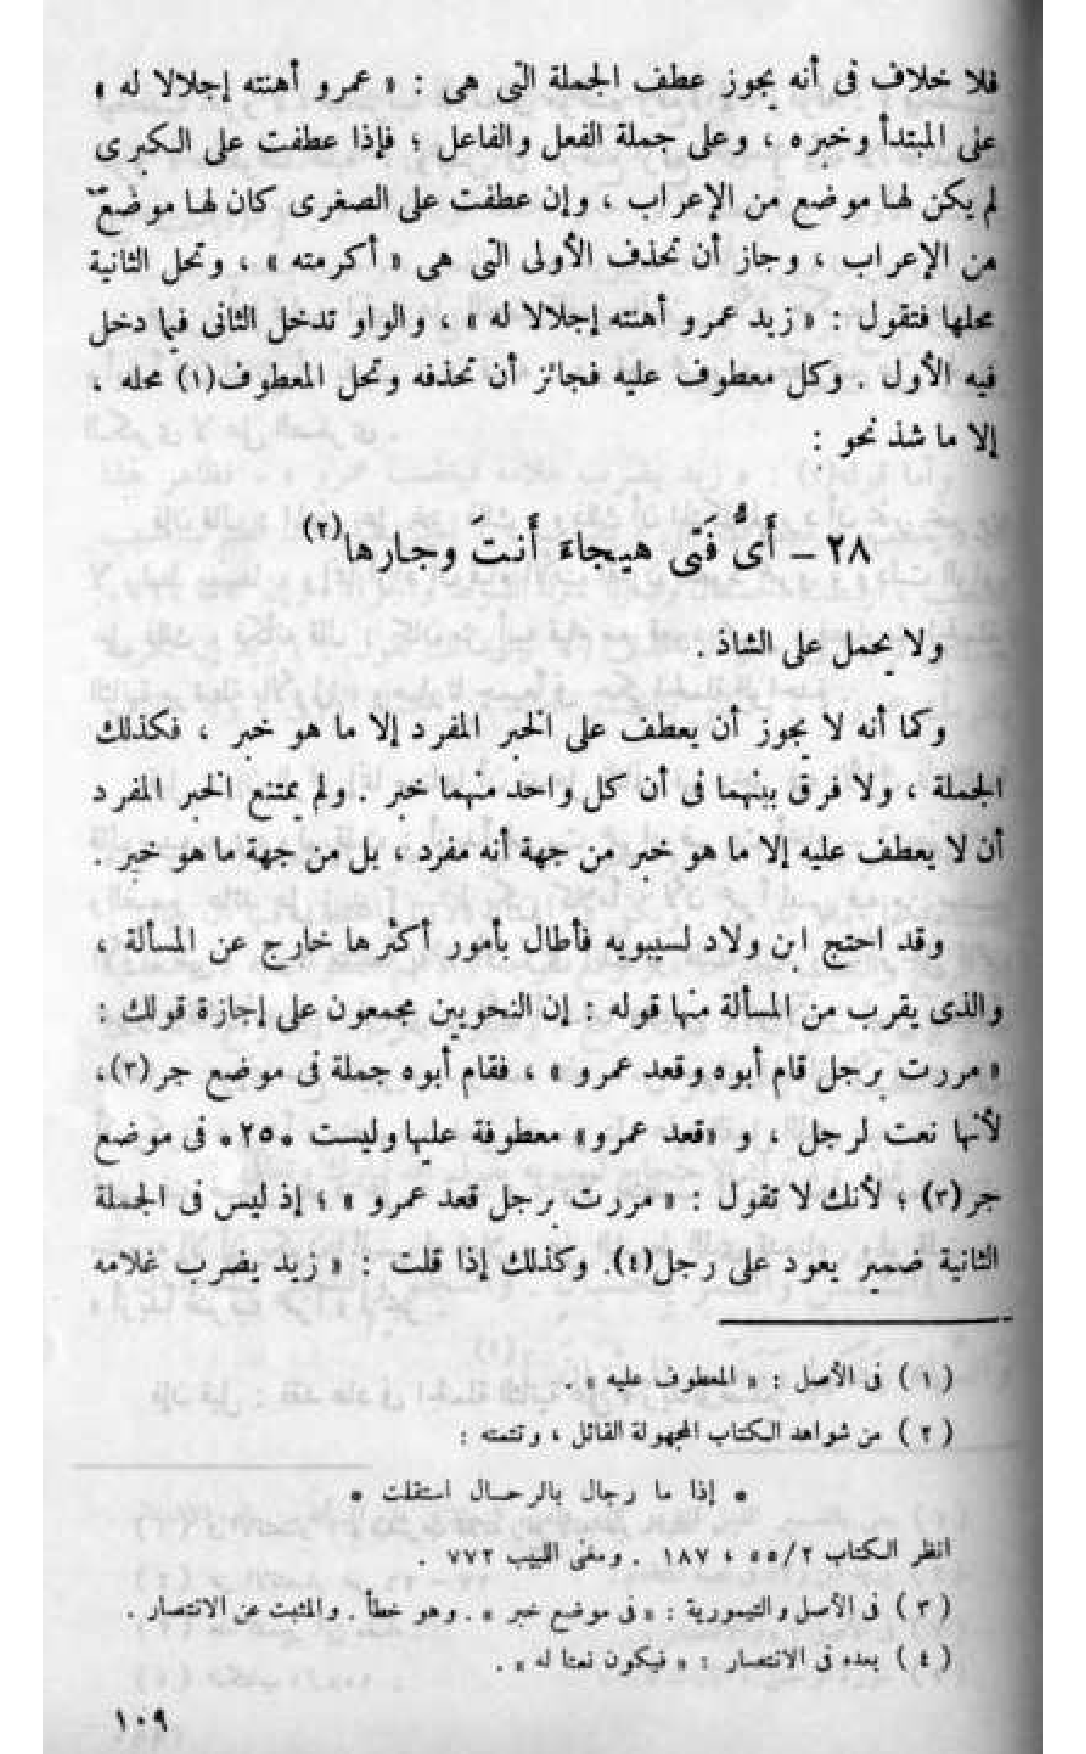 فلا خلاف فى أنه يجوز عطف الجملة التى هى : « عمرو أهنته إجلالا له »
على المبتدأ وخبره ، وعلى جملة الفعل والفاعل ؛ فإذا عطفت على الكبرى
لم يكن لها موضع من الإعراب ، وإن عطفت على الصغرى كان لها موضعٌ
من الإعراب ، وجاز أن تحذف الأولى التى هى « أكرمته » ، وتحل الثانية
محلها فتقول : « زيد عمرو أهنته إجلالا له » ، والواو تدخل الثانى فيما دخل
فيه الأول . وكل معطوف عليه فجائز أن تحذفه وتحل المعطوف(١) محله ،
إلا ما شذ نحو :
٢٨ – أَىُّ فَتَى هيجاءَ أَنتَ وجارها(٢)
ولا يحمل على الشاذ .
وكما أنه لا يجوز أن يعطف على الخبر المفرد إلا ما هو خبر ، فكذلك
الجملة ، ولا فرق بينهما فى أن كل واحد منهما خبر . ولم يمتنع الخبر المفرد
أن لا يعطف عليه إلا ما هو خبر من جهة أنه مفرد ، بل من جهة ما هو خبر .
وقد احتج ابن ولاد لسيبويه فأطال بأمور أكثرها خارج عن المسألة ،
والذى يقرب من المسألة منها قوله : إن النحويين مجمعون على إجازة قولك :
« مررت برجل قام أبوه وقعد عمرو » ، فقام أبوه جملة فى موضع جر(٣)،
لأنها نعت لرجل ، و «قعد عمرو» معطوفة عليها وليست *٢٥* فى موضع
جر(٣) ؛ لأنك لا تقول : « مررت برجل قعد عمرو » ؛ إذ ليس فى الجملة
الثانية ضمير يعود على رجل(٤). وكذلك إذا قلت : « زيد يضرب غلامه
( ١ ) فى الأصل : « المعطوف عليه » .
( ٢ ) من شواهد الكتاب المجهولة القائل ، وتتمته :
* إذا ما رجال بالرجال استقلت *
انظر الكتاب ٢/ ٥٥ ، ١٨٧ . ومغنى اللبيب ٧٧٢ .
( ٣ ) فى الأصل والتيمورية : « فى موضع خبر » . وهو خطأ . والمثبت عن الانتصار .
( ٤ ) بعده فى الانتصار : « فيكون نعتا له » .
١٠٩